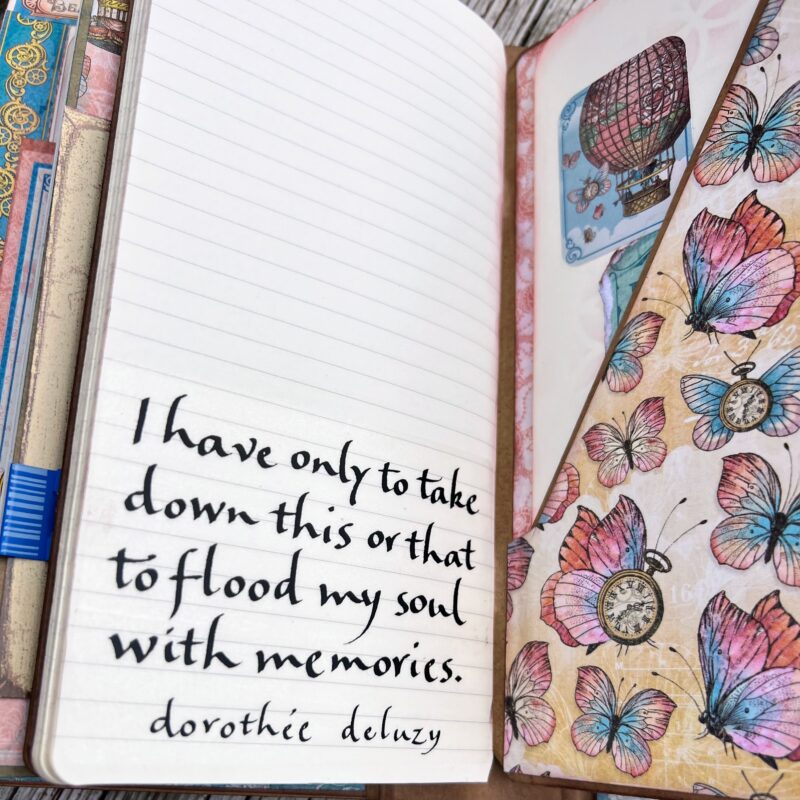 I have only to take
down this or that
to flood my soul
with memories.
dorothée deluzy